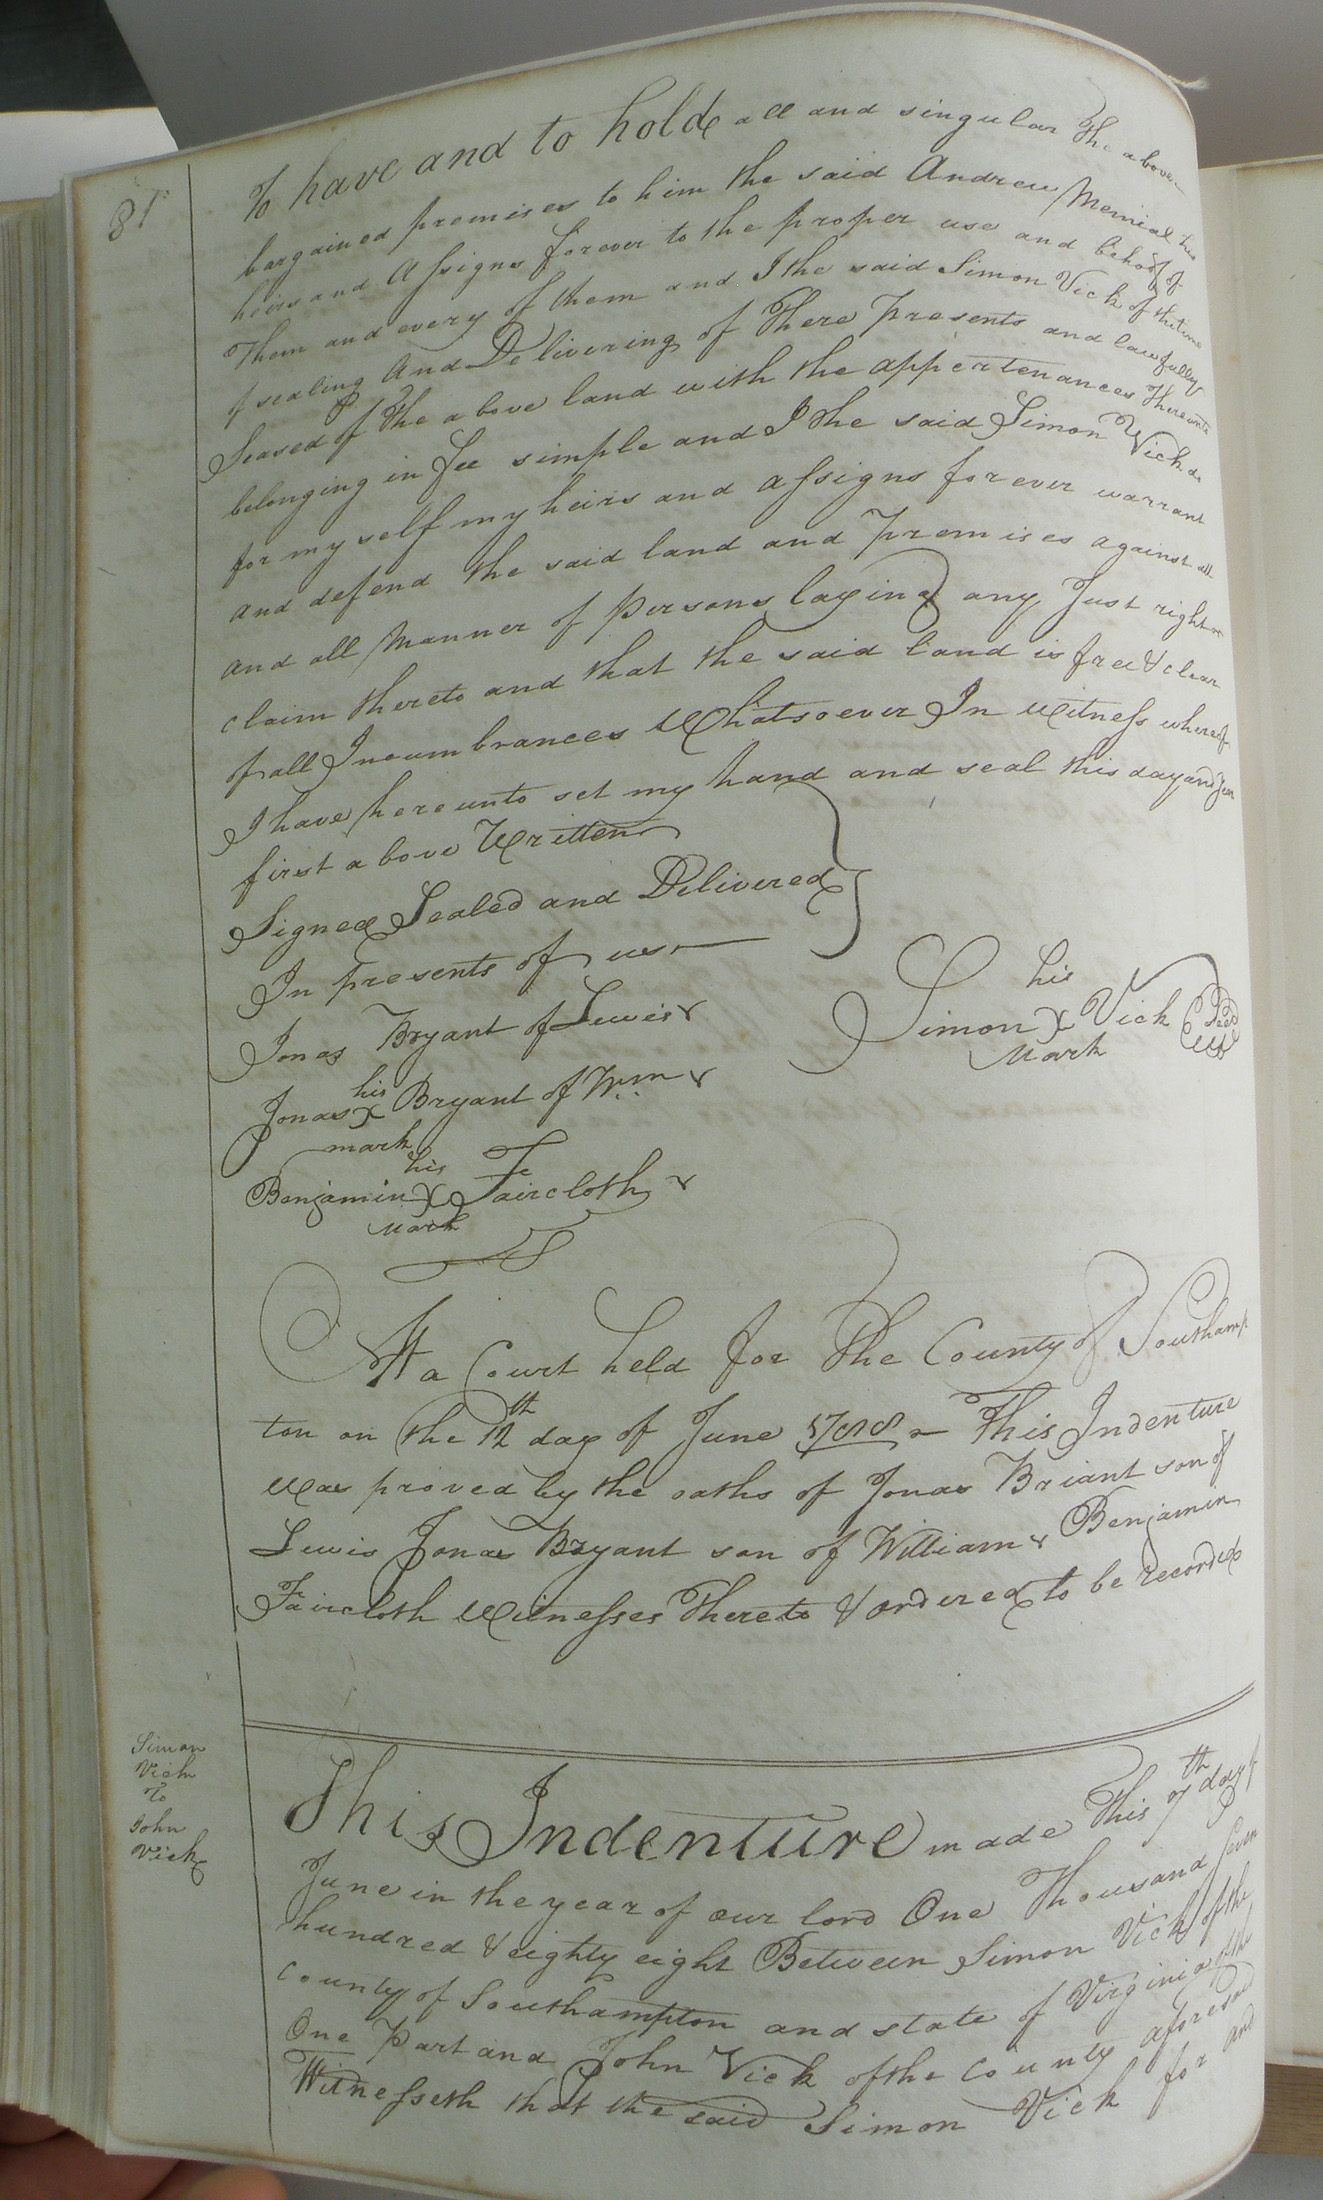 81
To have and to hold all and singular the above
bargained premises to him the said Andrew his
heirs and Assigns forever to the proper use and behoof of
Them and every of them and I the said Simon Vick at the time
of sealing And Delivering of These presents and lawfully
Seased of the above land with the appertenances thereunto
belonging in fee simple and I the said Simon Vick do
for my self my heirs and assigns forever warrant
and defend the said land and premises against all
and all manner of persons laying any Just right or
claim thereto and that the said land is free & clear
of all Incumbrances Whatsoever In Witness whereof
I have hereunto set my hand and seal this day and year
first above Written
Signed Sealed and Delivered
In presents of us
Jonas Bryant of Lewis
his
Simon X Vick
Mark
his
Jonas X Bryant of Wm
mark
his
Benjamin X Faircloth
Mark
At a Court held for the County of Southamp
ton on the 12th day of June 1788 This Indenture
Was proved by the oaths of Jonas Briant son of
Lewis Jonas Bryant son of William & Benjamin
Faircloth Witnesses thereto & ordered to be recorded
Simon
Vick
To
John
Vick
This Indenture made this 7th day of
June in the year of our lord One Thousand seven
hundred & eighty eight Between Simon Vick of the
County of Southampton and state of Virginia of the
One Part and John Vick of the County aforesaid
Witnesseth that the said Simon Vick for and